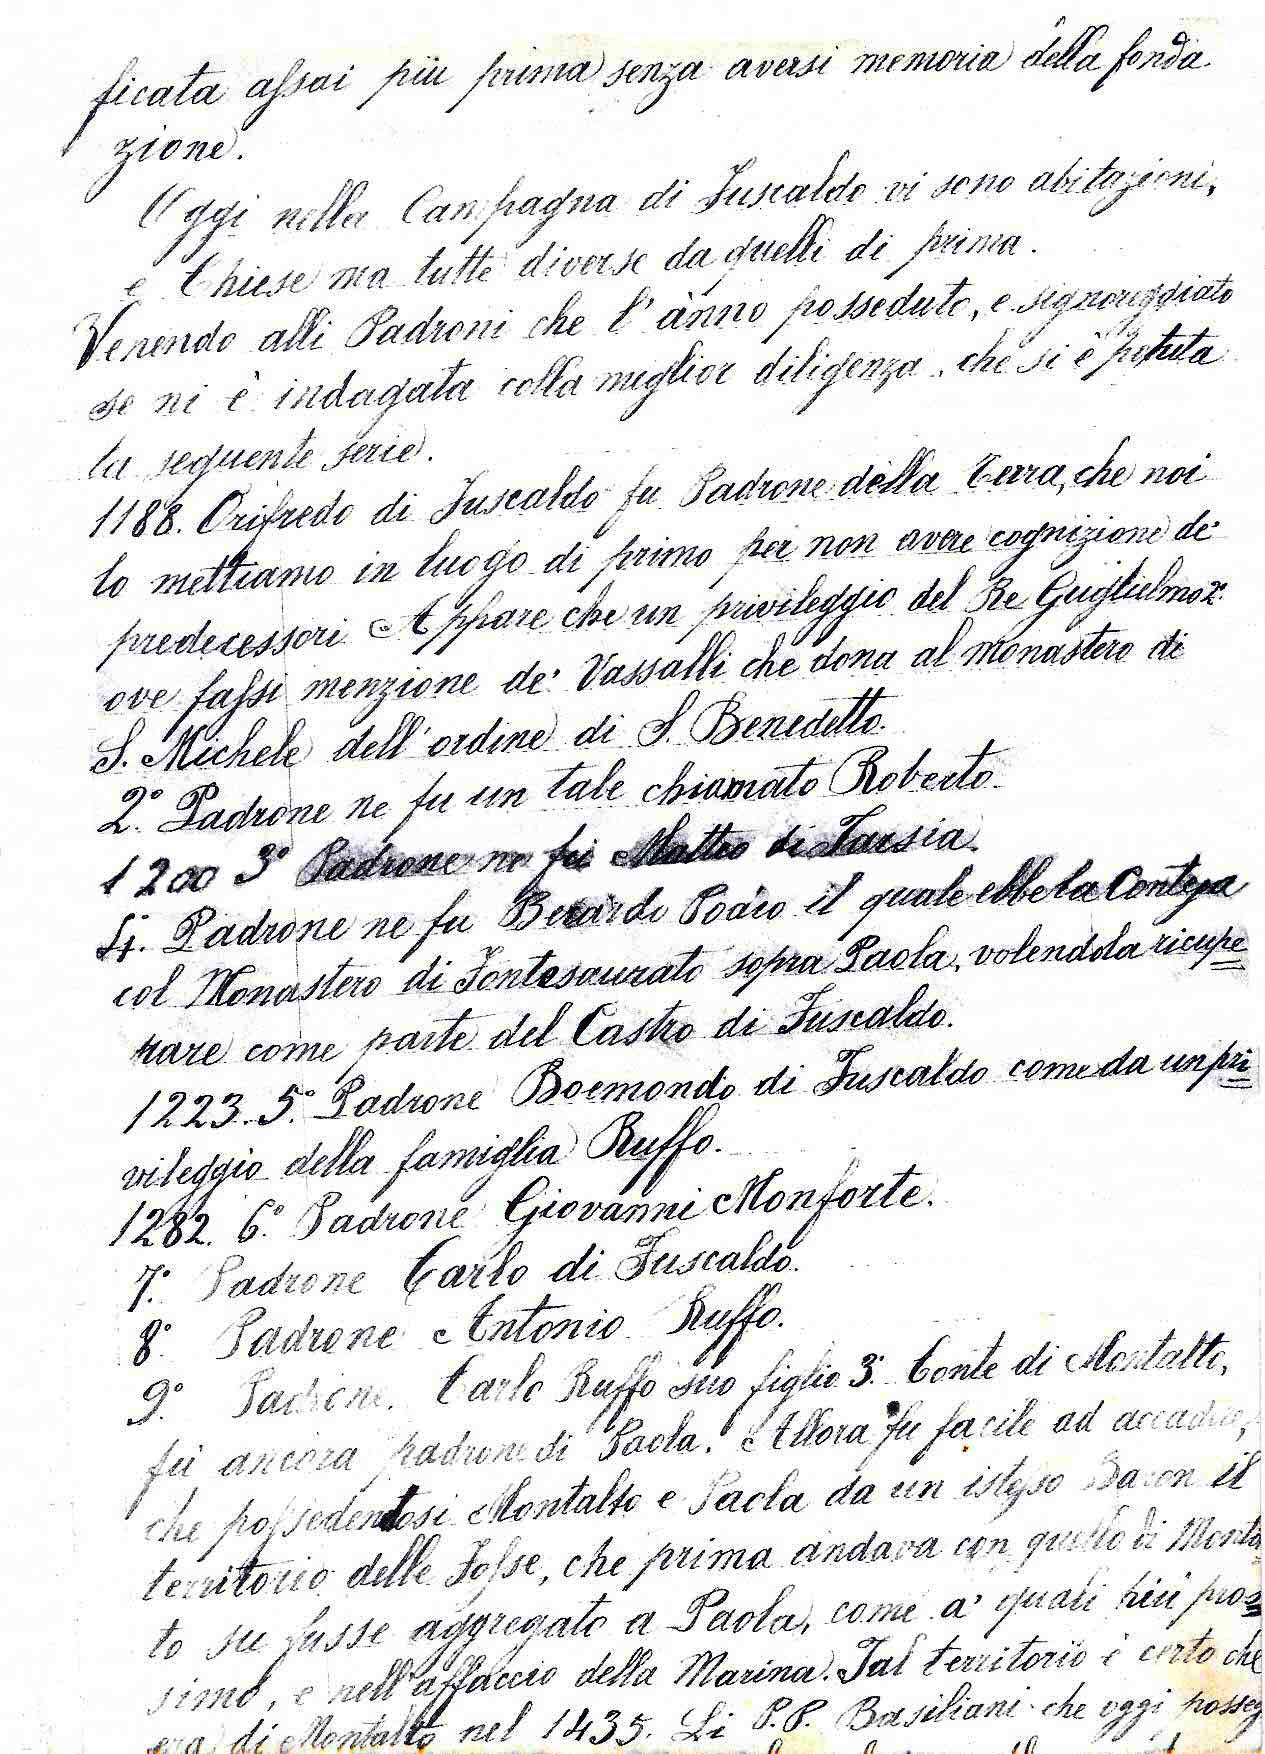 ficata assai più prima senza aversi memoria della fonda
zione.
Oggi nella Campagna di Fuscaldo vi sono abitazioni,
e Chiese ma tutte diverse da quelli di prima.
Venendo alli Padroni che l'ànno posseduto, e signoreggiato
se ni è indagata colla miglior diligenza, che si è potuta
la seguente serie.
1188. Orifredo di Fuscaldo fu Padrone della Terra, che noi
lo mettiamo in luogo di primo per non avere cognizione de'
predecessori. Appare che un privileggio del Re Guglielmo 2°.
ove fassi menzione de' Vassalli che dona al monastero di
S. Michele dell'ordine di S. Benedetto.
2° Padrone ne fu un tale chiamato Roberto.
1200 3° Padrone ne fu Matteo di Tarsia.
4. Padrone ne fu Berardo il quale ebbe la Contesa
col Monastero di Fontesaurato sopra Paola, volendola ricupe
rare come parte del Castro di Fuscaldo.
1223. 5° Padrone Boemondo di Fuscaldo come da un pri
vileggio della famiglia Ruffo.
1282. 6° Padrone Giovanni Monforte.
7° Padrone Carlo di Fuscaldo.
8° Padrone Antonio Ruffo.
9° Padrone. Carlo Ruffo suo figlio 3° Conte di Montalto,
fù ancora padrone di Paola. Allora fu facile ad accadere,
che possedentosi Montalto e Paola da un istesso Baron il
territorio delle Fosse, che prima andava con quello di Monta
to su fusse aggregato a Paola, come a' quali più pros
simo, e nell'affaccio della Marina. Tal territorio è certo che
era di Montalto nel 1435. Li P.P. Basiliani che oggi posseg